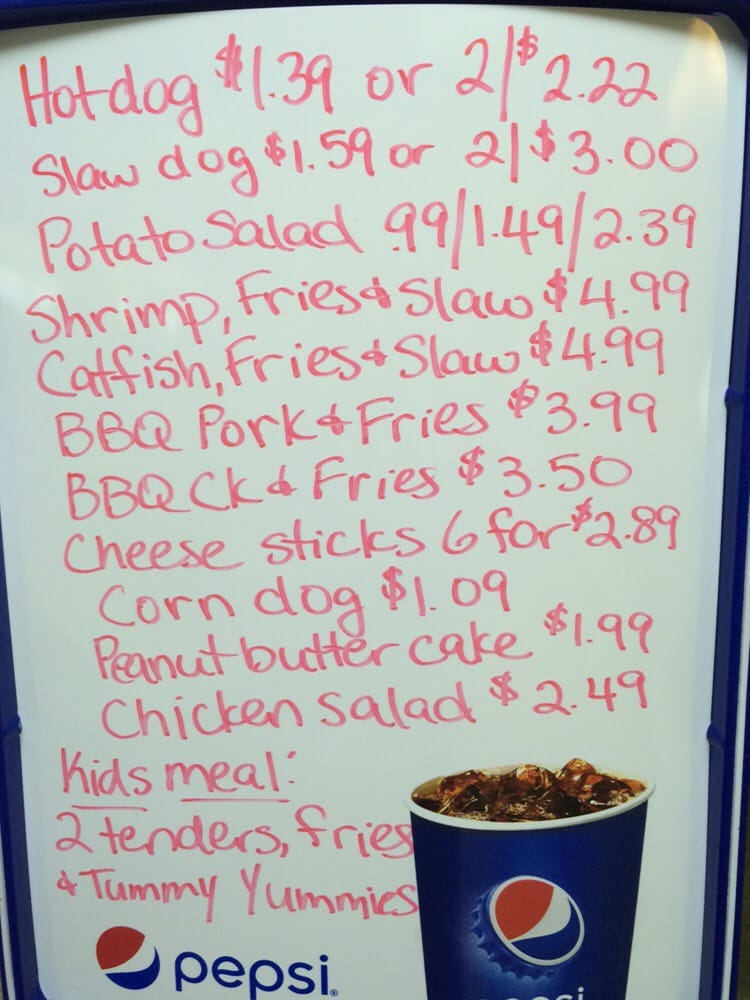 Hotdog $1.39 or 2/$2.22
Slaw dog $1.59 or 2/$3.00
Potato Salad .99/1.49/2.39
Shrimp, Fries & Slaw $4.99
Catfish, Fries & Slaw $4.99
BBQ Pork & Fries $3.99
BBQ Ck & Fries $3.50
Cheese sticks 6 for $2.89
Corn dog $1.09
Peanut butter cake $1.99
Chicken Salad $2.49
Kids meal:
2 tenders, fries
& Tummy Yummies
pepsi